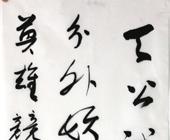 天公
分外妖
英雄競